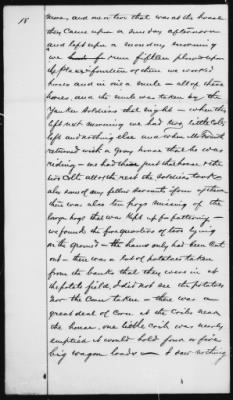 18
mules and one two that was at the house
they came upon a Sunday afternoon
and left upon a monday morning
we run fifteen plows upon
the place fourteen of them we worked
horses and in one a mule - all of these
horses and the mule was taken by the
Yankee soldiers that night - when they
left next morning we had two little colts
left and nothing else and when Mr
returned with a gray horse that he was
riding - we had just that horse & the
two colts all of the rest the soldiers took
also some of my fellow servants from up there
there was also ten hogs missing of the
large hogs that was kept up for fattening -
we found the fore quarters of two lying
on the ground - the hams only had been cut
out - there was a lot of potatoes taken
from the banks that they were in at
the potato field, I did not see the potatoes
nor the corn taken - there was a
great deal of corn at the cribs near
the house, one little crib was nearly
emptied it would hold four or five
big wagon loads - I saw nothing